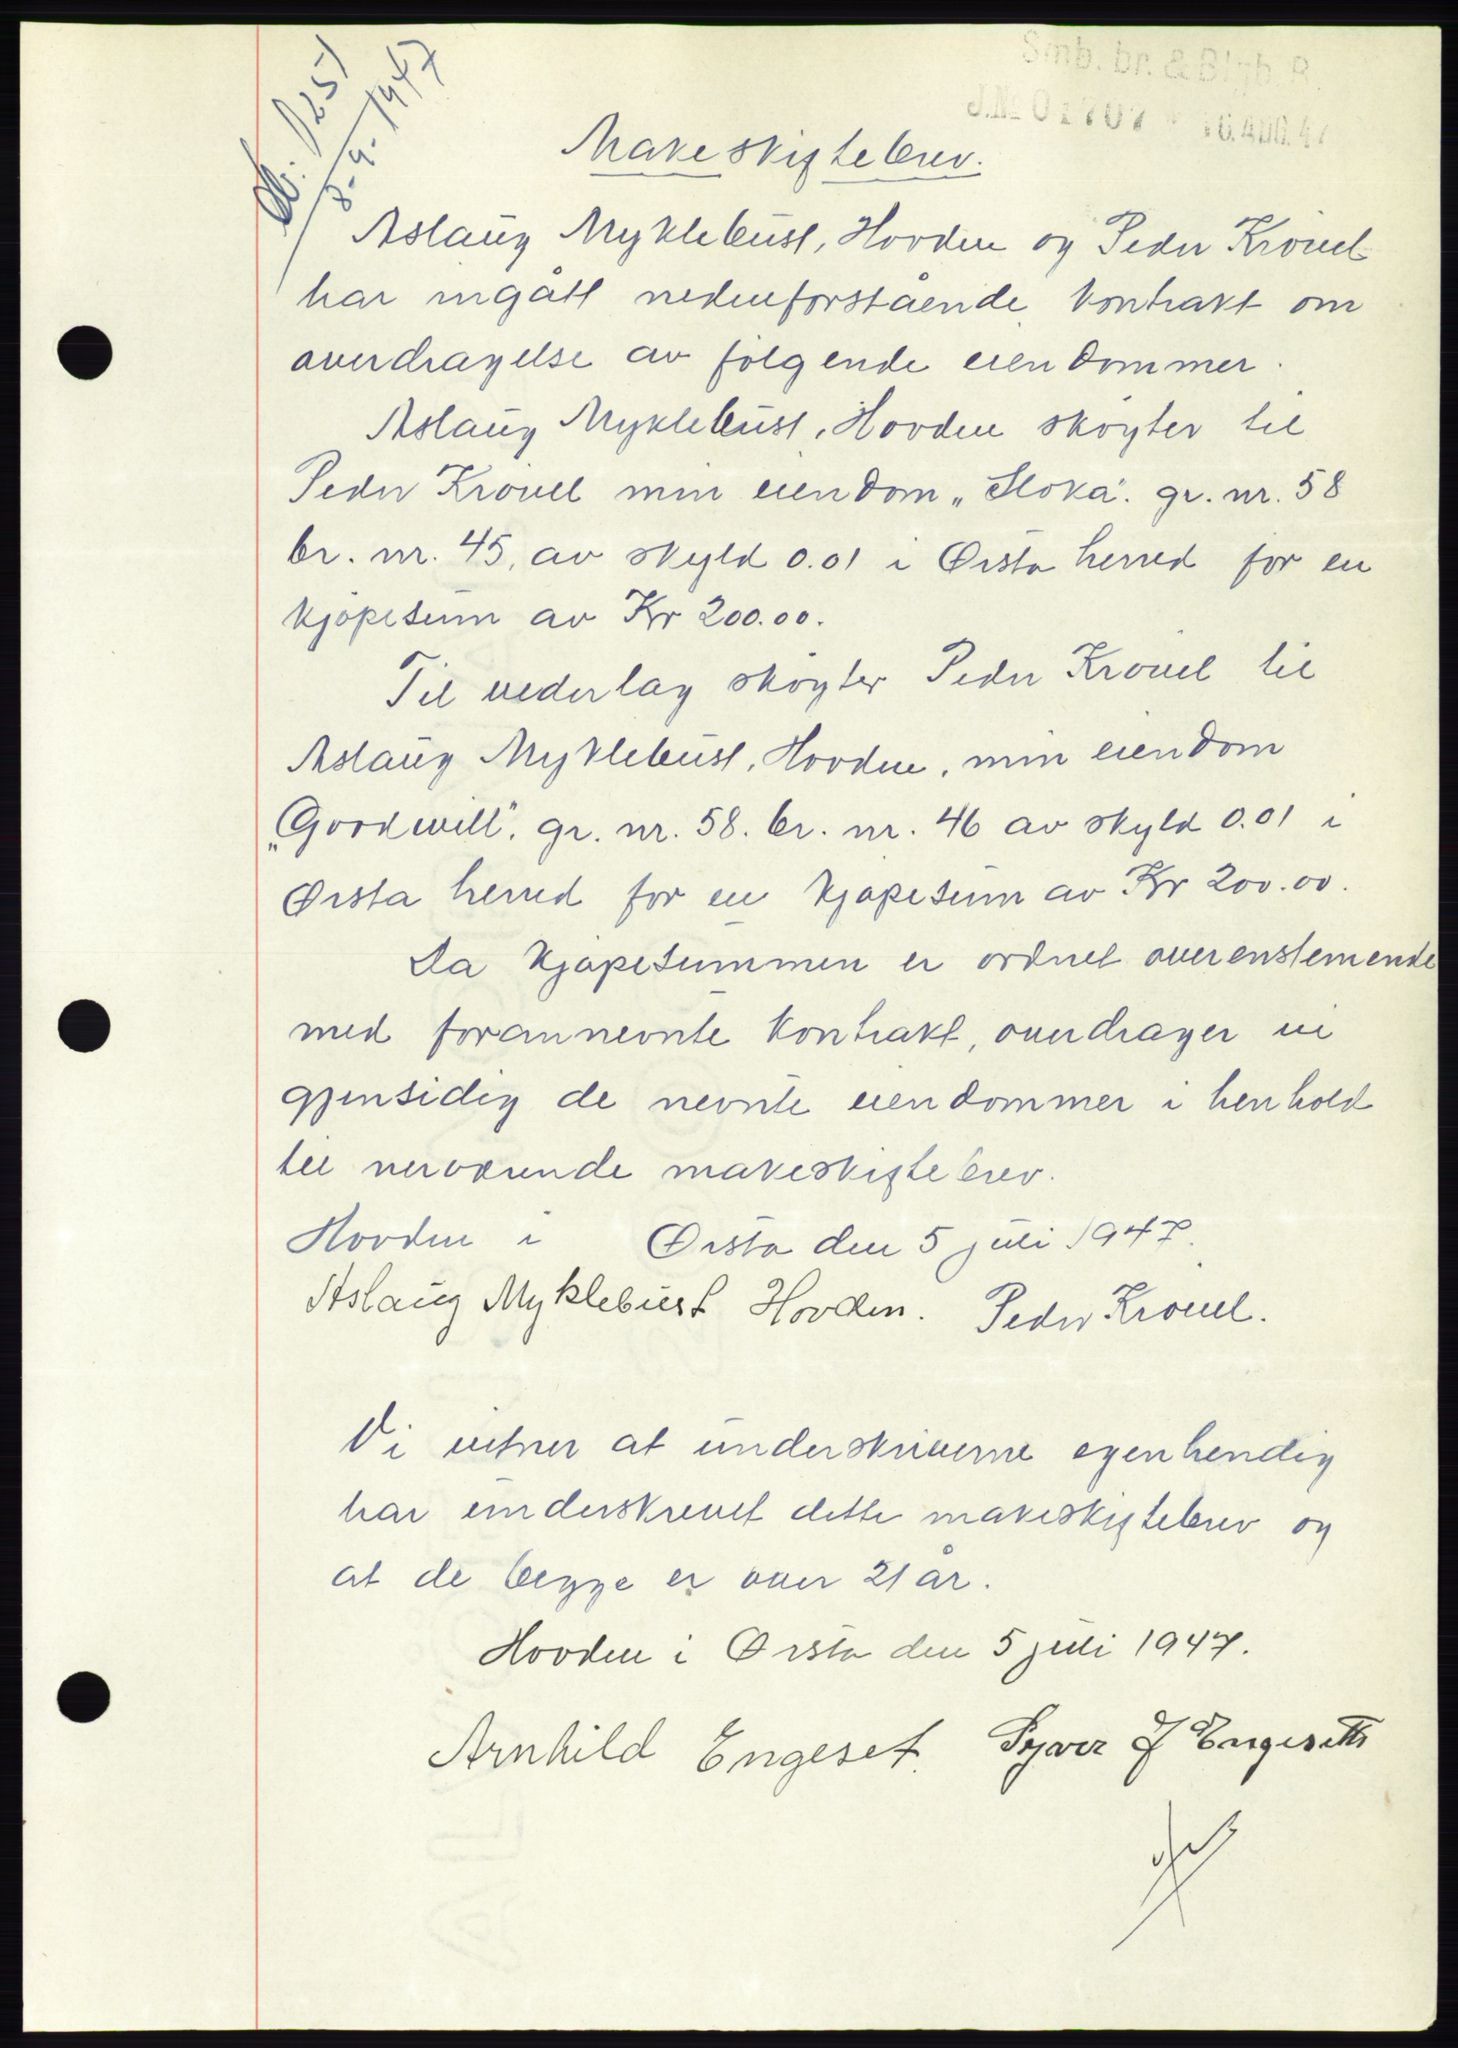 1251
8-9-1947
Smb. br. & Blgb. R.
J.No 01707 * 16.AUG.47
Makeskiftebrev.
Aslaug Myklebust, Hovden og Peder Krøvel
har ingått nedenforstående kontrakt om
overdragelse av følgende eiendommer.
Aslaug Myklebust, Hovden skøyter til
Peder Krøvel min eiendom „Sloka". gr. nr. 58
br. nr. 45, av skyld 0.01 i Ørsta herred for en
kjøpesum av Kr 200.00.
Til vederlag skøyter Peder Krøvel til
Aslaug Myklebust, Hovden, min eiendom
„Goodwill". gr. nr. 58. br. nr. 46 av skyld 0.01 i
Ørsta herred for en kjøpesum av Kr 200.00.
Da kjøpesummen er ordnet overenstemende
med forannevnte kontrakt, overdrager vi
gjensidig de nevnte eiendommer i henhold
til nerværende makeskiftebrev.
Hovden i Ørsta den 5 juli 1947.
Aslaug Myklebust Hovden. Peder Krøvel.
Vi vitner at underskriverne egenhendig
har underskrevet dette makeskiftebrev og
at de begge er over 21 år.
Hovden i Ørsta den 5 juli 1947.
Arnhild Engeset. Syver J Engeseth